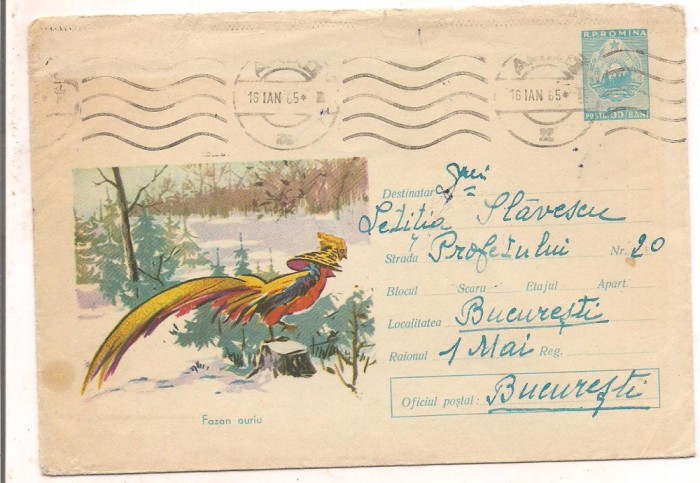 R.P.ROMINA
POSTA 55 BANI
16 IAN 65
16 IAN 65
Destinatar
Letiția Slăvescu
Strada Profetului Nr. 20
Blocul Scara Etajul Apart.
Localitatea București
Raionul 1 Mai Reg.
Oficiul poștal: București
Fazan auriu